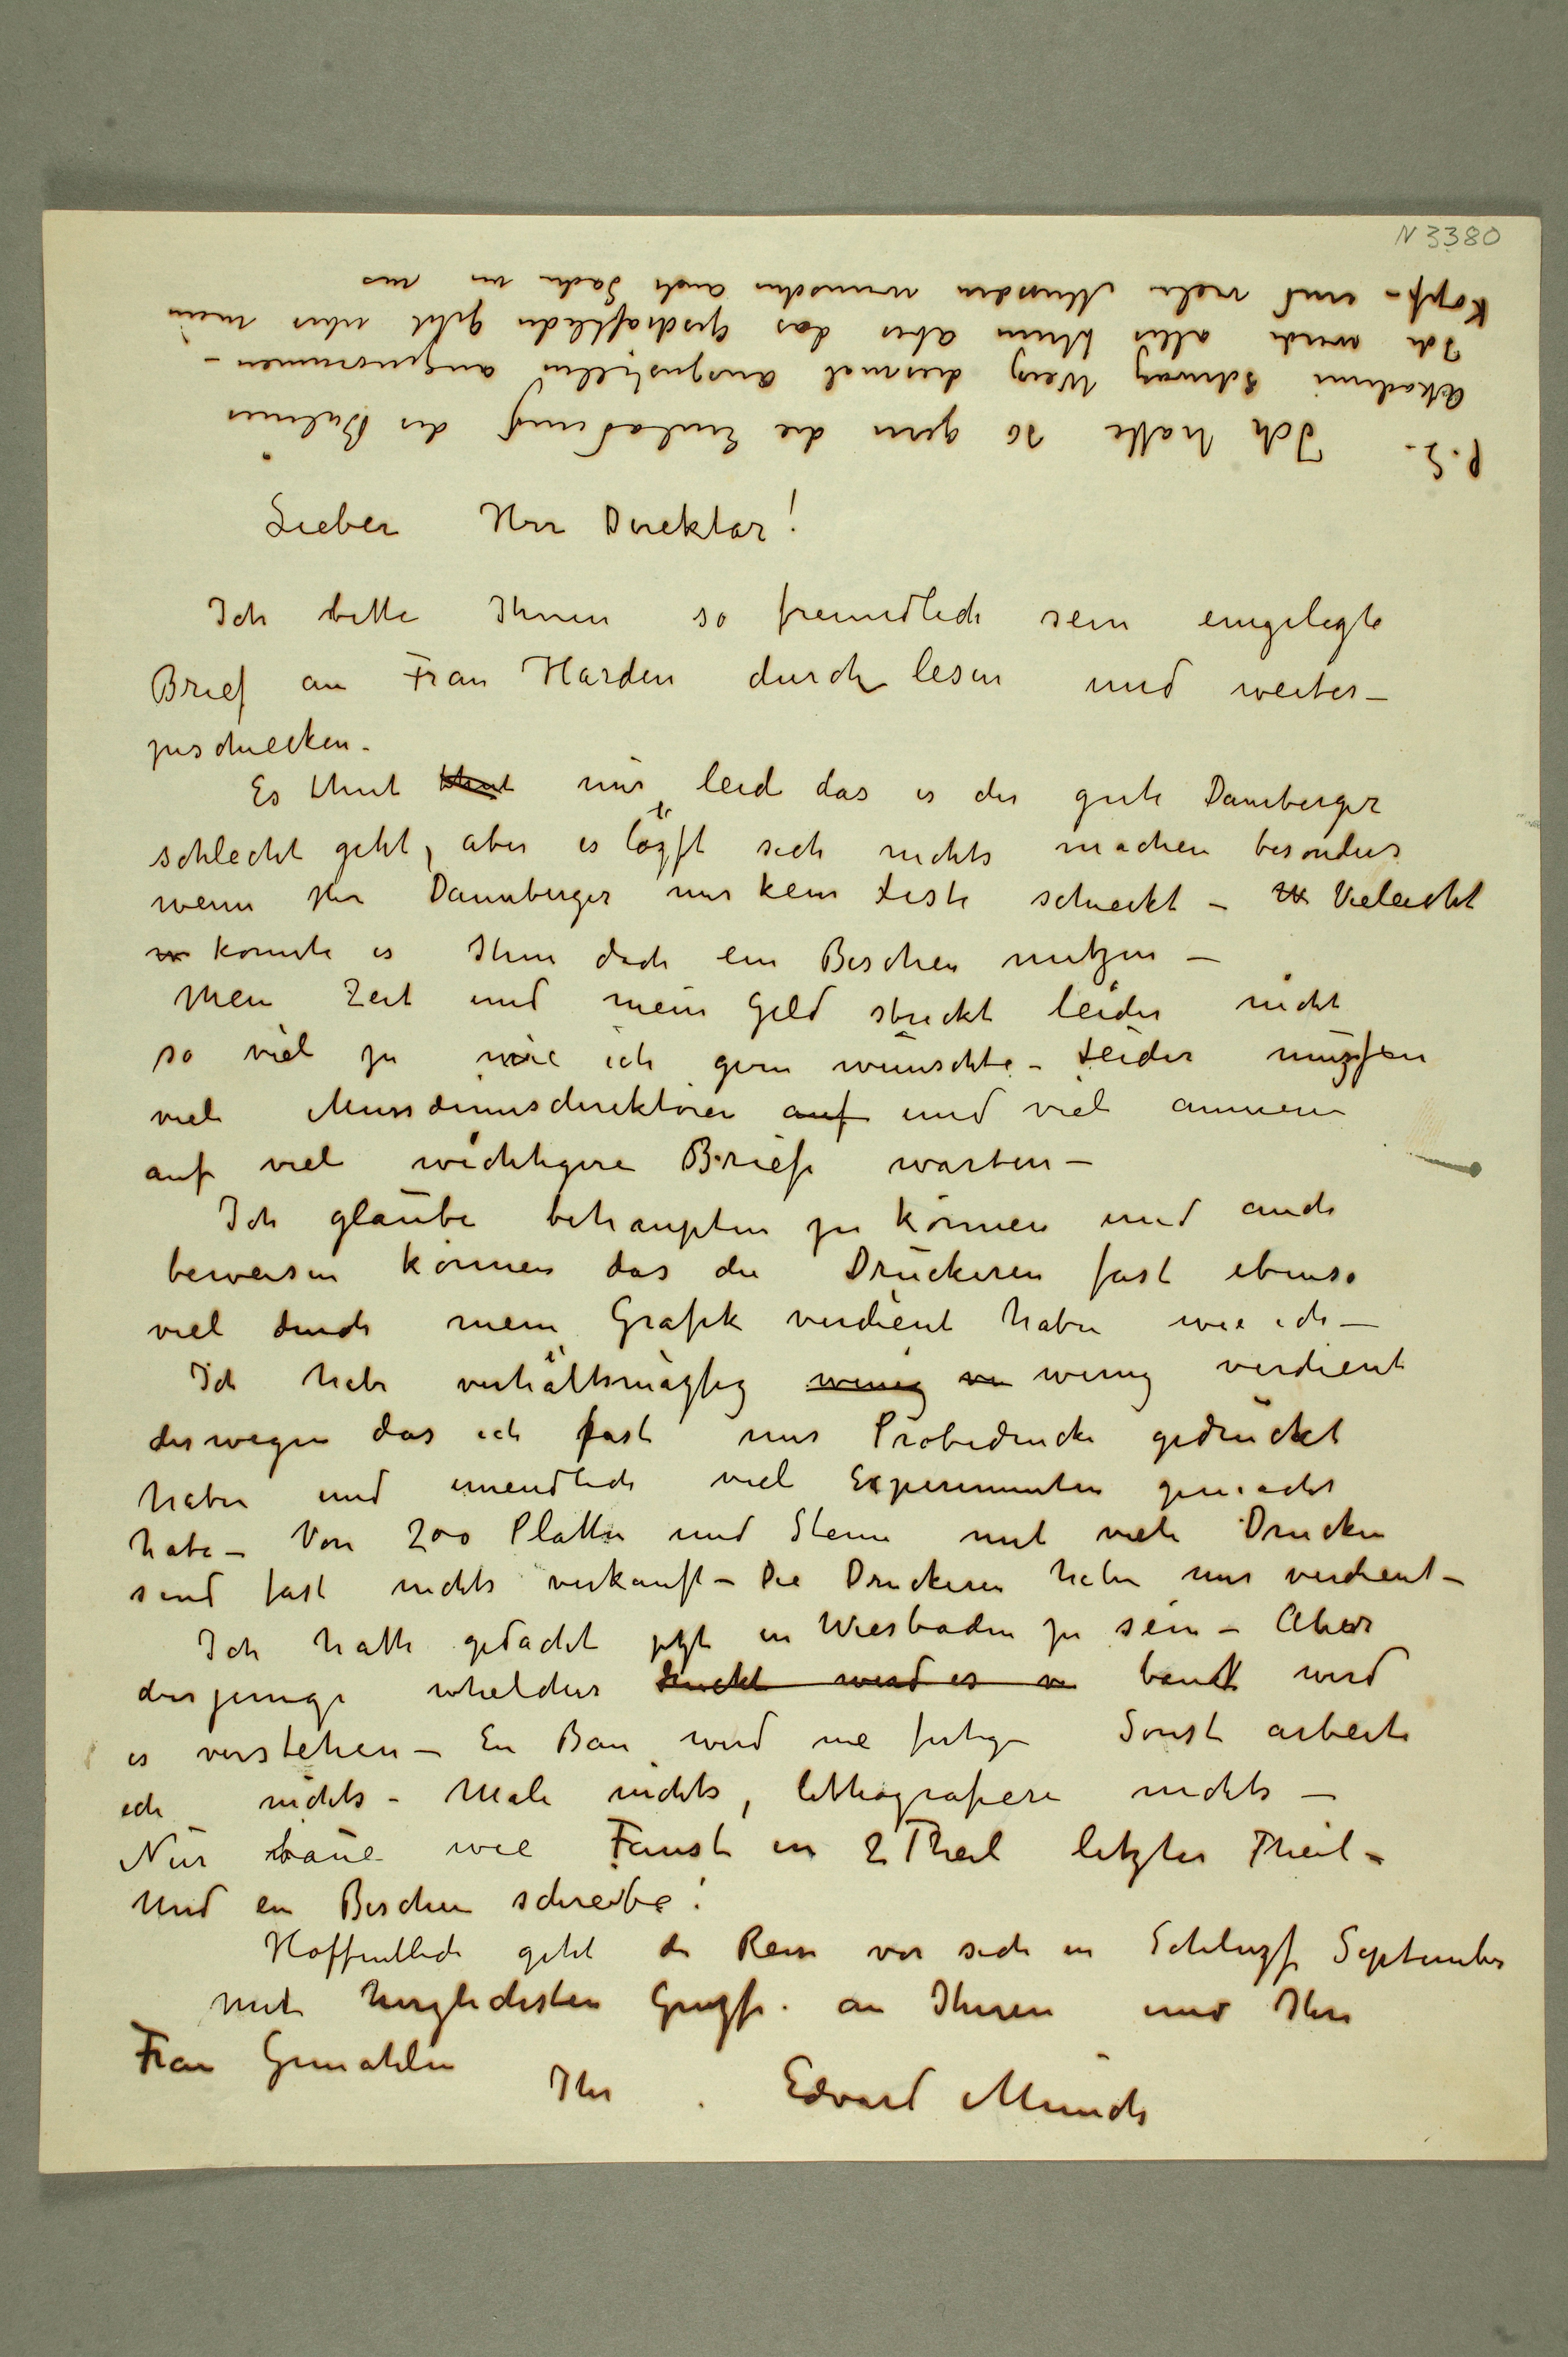 N 3380
Lieber Herr Direktor!
Ich bitte Ihnen so freundlich sein eingelegte
Brief an Frau Harden durch lesen und weiter–
zuschiecken.
Es thut thut mir leid das es der gute Dannberger
schlecht geht, aber es läszft sich nichts machen besonders
wenn Herr Dannberger mir kein Liste schieckt – Vieleicht
konnte es Ihm doch ein Bischen nutzen –
Mein Zeit und mein Geld streckt leider nicht
so viel zu wie ich gern wünschte – Leider muszfen
viele Musseumsdirektoren auf und viel
auf viel wichtigere Briefe warten –
Ich glaube behaupten zu können und auch
beweisen können das die Druckeren fast ebenso
viel durch meine Grafik verdient haben wie ich –
Ich habe verhältsmäszfig wenig wenig verdient
deswegen das ich fast nur Probedrucke gedruckt
habe und unendlich viel Experimenten gemacht
habe – Von 200 Platten und Steine mit viele Drucken
sind fast nichts verkauft – Die Druckeren haben nur verdient –
Ich hatte gedacht jetzt in Wiesbaden zu sein – Aber
derjenige whelcher druckt wird es baut wird
es verstehen – Ein Bau wird nie fertig – Sonst arbeite
ich nichts – Male nichts, lithografiere nichts –
Nur baue wie Faust in 2 Theil letzter Theil –
Und ein Bischen schreibe!
Hoffentlich geht die Reise vor sich in Schluszf September
Mit herzlichsten Gruszfe an Ihnen und Ihre
Frau Gemahlin
Ihr Edvard Munch
P.S. – Ich hatte so gern die Einladung der Berliner
Akademi Schwarz Weisz diesmal auszustellen angenommen –
Ich werde alles thun aber das Geschäftliche geht über mein
Kopf – und viele Musseen wunschen auch Sache von mir